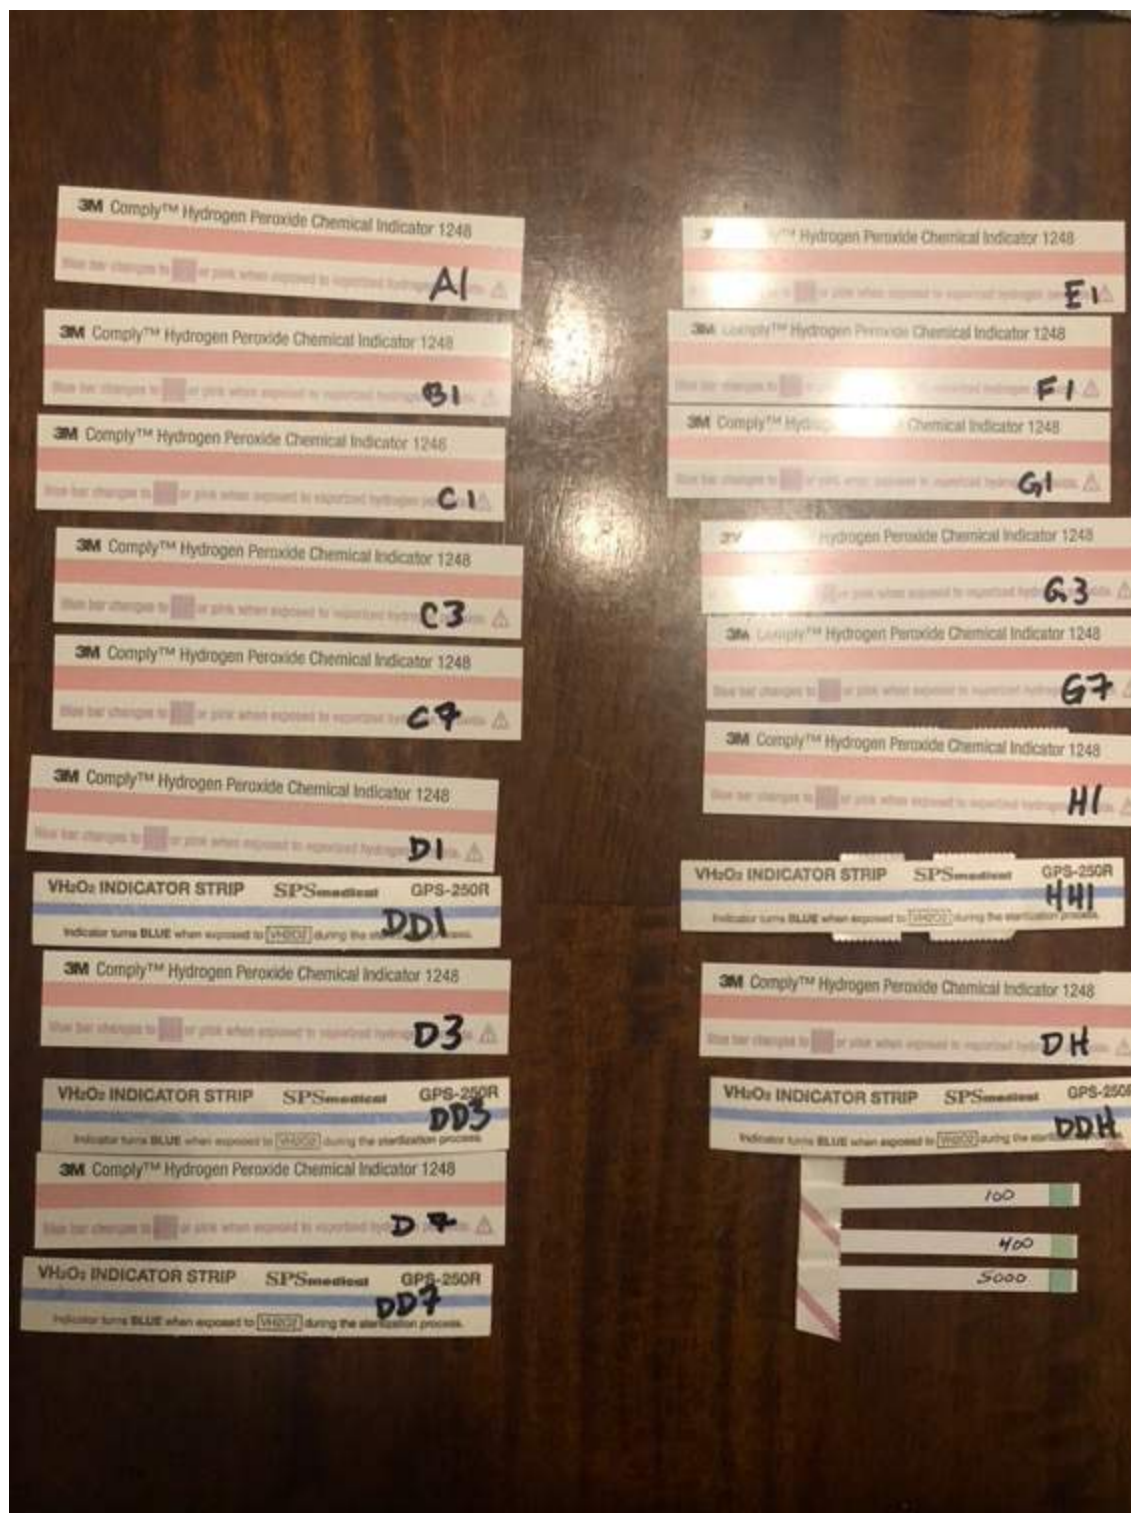 3M Comply™ Hydrogen Peroxide Chemical Indicator 1248
Blue bar changes to or pink when exposed to vaporized hydrogen
A1
3M Comply™ Hydrogen Peroxide Chemical Indicator 1248
Blue bar changes to or pink when exposed to vaporized hydrogen
B1
3M Comply™ Hydrogen Peroxide Chemical Indicator 1248
Blue bar changes to or pink when exposed to vaporized hydrogen
C1
3M Comply™ Hydrogen Peroxide Chemical Indicator 1248
Blue bar changes to or pink when exposed to vaporized
C3
3M Comply™ Hydrogen Peroxide Chemical Indicator 1248
Blue bar changes to or pink when exposed to vaporized
C7
3M Comply™ Hydrogen Peroxide Chemical Indicator 1248
Blue bar changes to or pink when exposed to vaporized
D1
VH2O2 INDICATOR STRIP SPSmedical GPS-250R
Indicator turns BLUE when exposed to VH2O2 during the process.
DD1
3M Comply™ Hydrogen Peroxide Chemical Indicator 1248
Blue bar changes to or pink when exposed to vaporized
D3
VH2O2 INDICATOR STRIP SPSmedical GPS-250R
Indicator turns BLUE when exposed to VH2O2 during the sterilization process.
DD3
3M Comply™ Hydrogen Peroxide Chemical Indicator 1248
Blue bar changes to or pink when exposed to vaporized
D7
VH2O2 INDICATOR STRIP SPSmedical GPS-250R
Indicator turns BLUE when exposed to VH2O2 during the sterilization process.
DD7
Hydrogen Peroxide Chemical Indicator 1248
or pink when exposed to vaporized hydrogen
E1
3M Comply™ Hydrogen Peroxide Chemical Indicator 1248
Blue bar changes to vaporized hydrogen
F1
3M Comply™ Chemical Indicator 1248
Blue bar changes to or pink when exposed to vaporized
G1
Hydrogen Peroxide Chemical Indicator 1248
or pink when exposed to vaporized
G3
3M Comply™ Hydrogen Peroxide Chemical Indicator 1248
Blue bar changes to or pink when exposed to vaporized
G7
3M Comply™ Hydrogen Peroxide Chemical Indicator 1248
Blue bar changes to or pink when exposed to vaporized
H1
VH2O2 INDICATOR STRIP SPSmedical GPS-250R
Indicator turns BLUE when exposed to VH2O2 during the sterilization process.
HH1
3M Comply™ Hydrogen Peroxide Chemical Indicator 1248
Blue bar changes to or pink when exposed to vaporized
DH
VH2O2 INDICATOR STRIP SPSmedical
Indicator turns BLUE when exposed to VH2O2 during the
DDH
100
400
5000